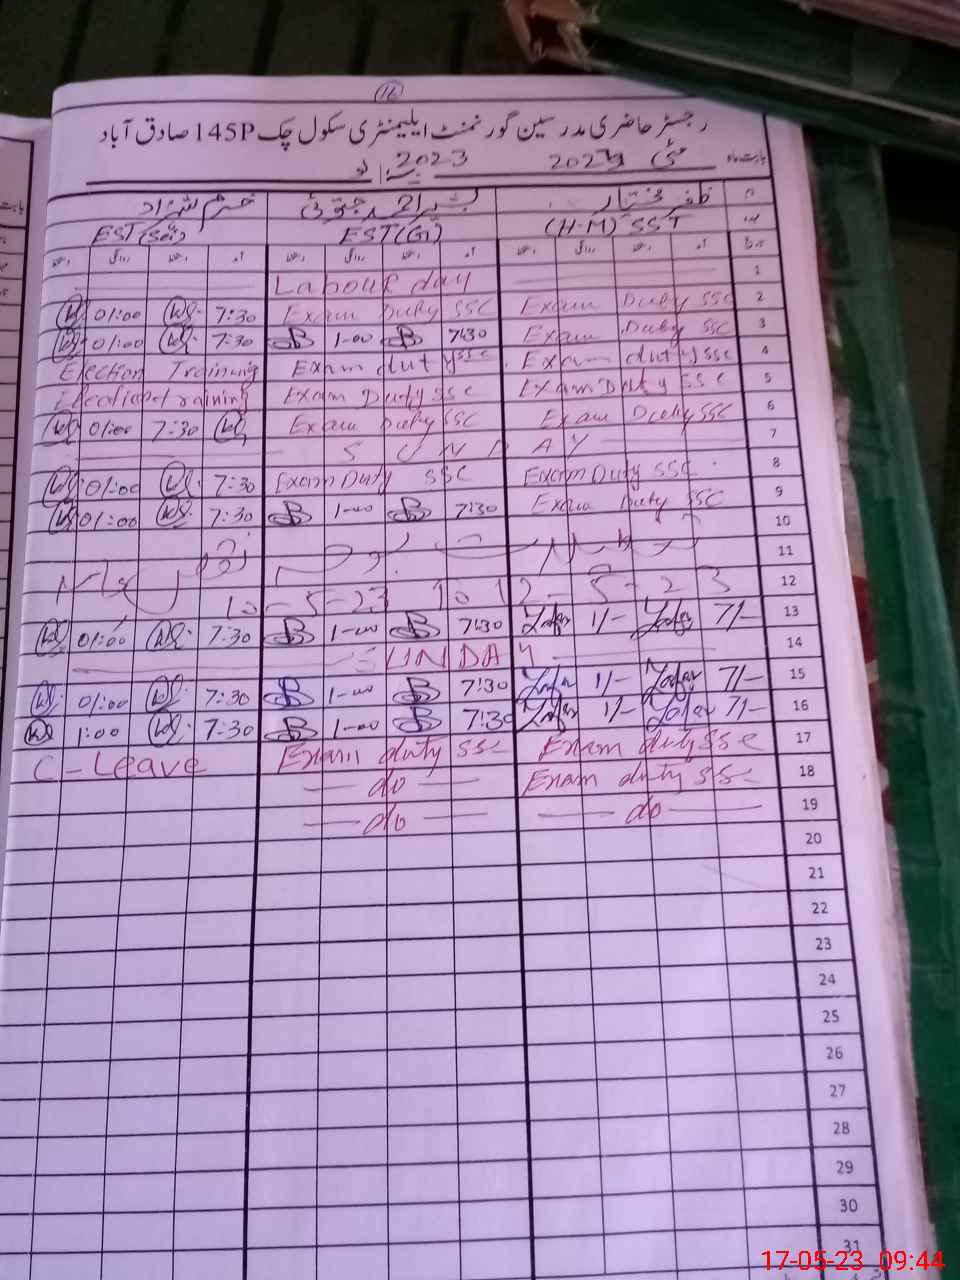 16
رجسٹر حاضری مدرسین گورنمنٹ ایلیمنٹری سکول چک 145P صادق آباد
بابت ماہ مئی 2023 2023
ظفر مختار بشیر احمد جتوئی خرم شہزاد
(H.M) SST EST(G) EST(Sci)
1 Labour day
2 Exam Duty SSC Exam Duty SSC 7:30 01:00
3 Exam Duty SSC 7:30 1-00 7:30 01:00
4 Exam duty SSC Exam duty SSC Election Training
5 Exam Duty SSC Exam Duty SSC Election training
6 Exam Duty SSC Exam Duty SSC 7:30 01:00
7 SUNDAY
8 Exam Duty SSC Exam Duty SSC 7:30 01:00
9 Exam Duty SSC 7:30 1-00 7:30 01:00
10
11
12 10-5-23 To 12-5-23
13 Zafar 7/- Zafar 1/- 7:30 1-00 7:30 01:00
14 SUNDAY
15 Zafar 7/- Zafar 1/- 7:30 1-00 7:30 01:00
16 Zafar 7/- Zafar 1/- 7:30 1-00 7:30 1:00
17 Exam duty SSC Exam duty SSC C-Leave
18 Exam duty SSC — do —
19 — do — — do —
20
21
22
23
24
25
26
27
28
29
30
31
17-05-23 09:44